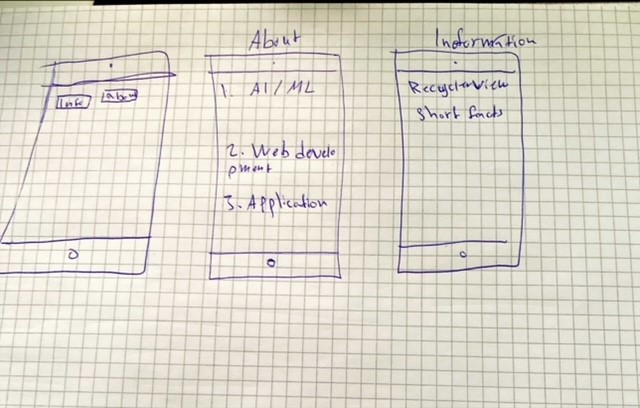 Info
About
About
1. AI/ML
2. Web develo
pment
3. Application
Information
RecyclerView
Short facts